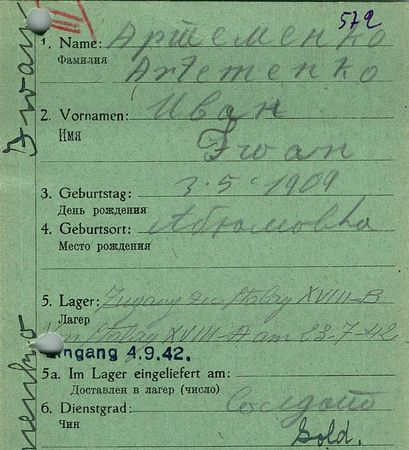 572
1. Name: Артеменко
Фамилия
Artemenko
2. Vornamen: Иван
Имя
Iwan
3. Geburtstag: 3·5·1909
День рождения
4. Geburtsort: Абрамовка
Место рождения
5. Lager: Zugang zu Stalag XVIII-B
Лагер
von Stalag XVIII-A am 23-7-42
Eingang 4.9.42.
5a. Im Lager eingeliefert am:
Доставлен в лагер (число)
6. Dienstgrad: Солдат
Чин
Sold.
Iwan